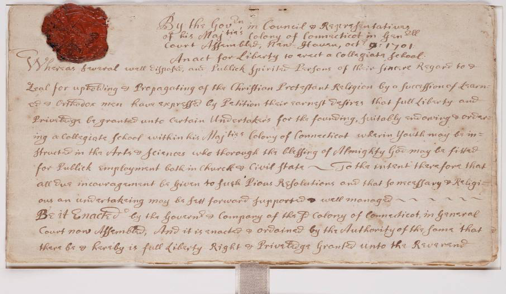 By the Govrn in Council & Representatives
of his Majties Colony of Connecticut in Genrll
Court Assembled, New-Haven, octr 9: 1701
An act for Liberty to erect a Collegiate School.
Whereas Several well disposed, and Publick Spirited Persons of their Sincere Regard to &
Zeal for upholding & Propagating of the Christian Protestant Religion by a succession of Learn
ed & Orthodox men have expressed by Petition their earnest desires that full Liberty and
Priveledge be granted unto Certain Undertakers for the founding, suitably endowing & order
ing a Collegiate School within his Majties Colony of Connecticut wherein Youth may be in=
structed in the Arts & Sciences who thorough the blessing of Almighty God may be fitted
for Publick employment both in Church & Civil State To the intent therefore that
all due incouragement be Given to such Pious Resolutions and that so necessary & Religi
ous an undertaking may be sett forward supported & well managed
Be it Enacted by the Governd & Company of the sd Colony of Connecticut, in General
Court now Assembled, And it is enacted & ordained by the Authority of the same that
there be & hereby is full Liberty Right & Priveledge Granted unto the Reverend